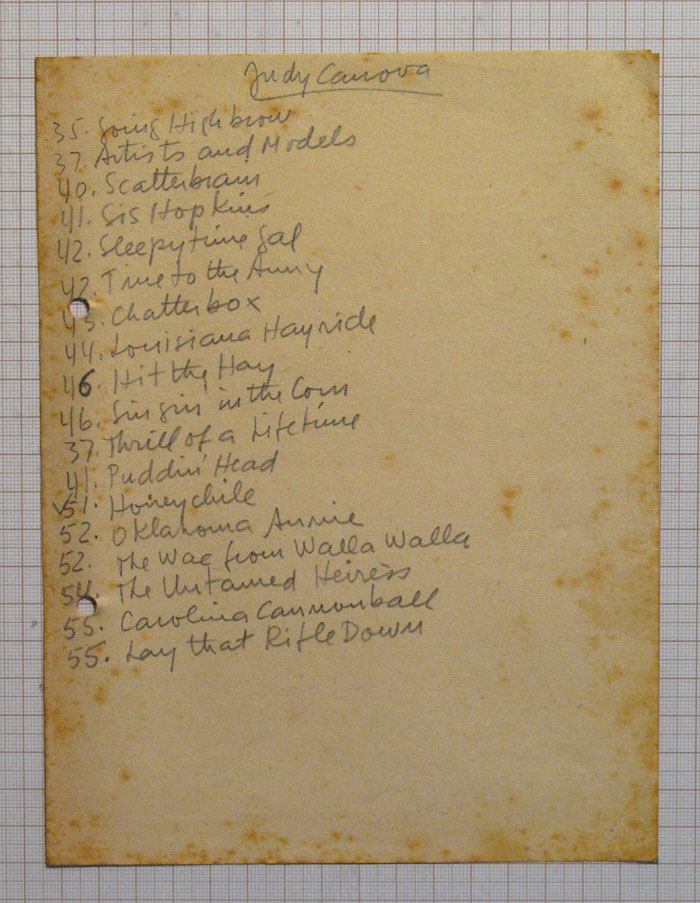 Judy Canova
35. Going Highbrow
37. Artists and Models
40. Scatterbrain
41. Sis Hopkins
42. Sleepytime Gal
42. True to the Army
43. Chatterbox
44. Louisiana Hayride
46. Hit the Hay
46. Singin' in the Corn
37. Thrill of a Lifetime
41. Puddin' Head
✓51. Honeychile
52. Oklahoma Annie
52. The Wac from Walla Walla
54. The Untamed Heiress
55. Carolina Cannonball
55. Lay that Rifle Down